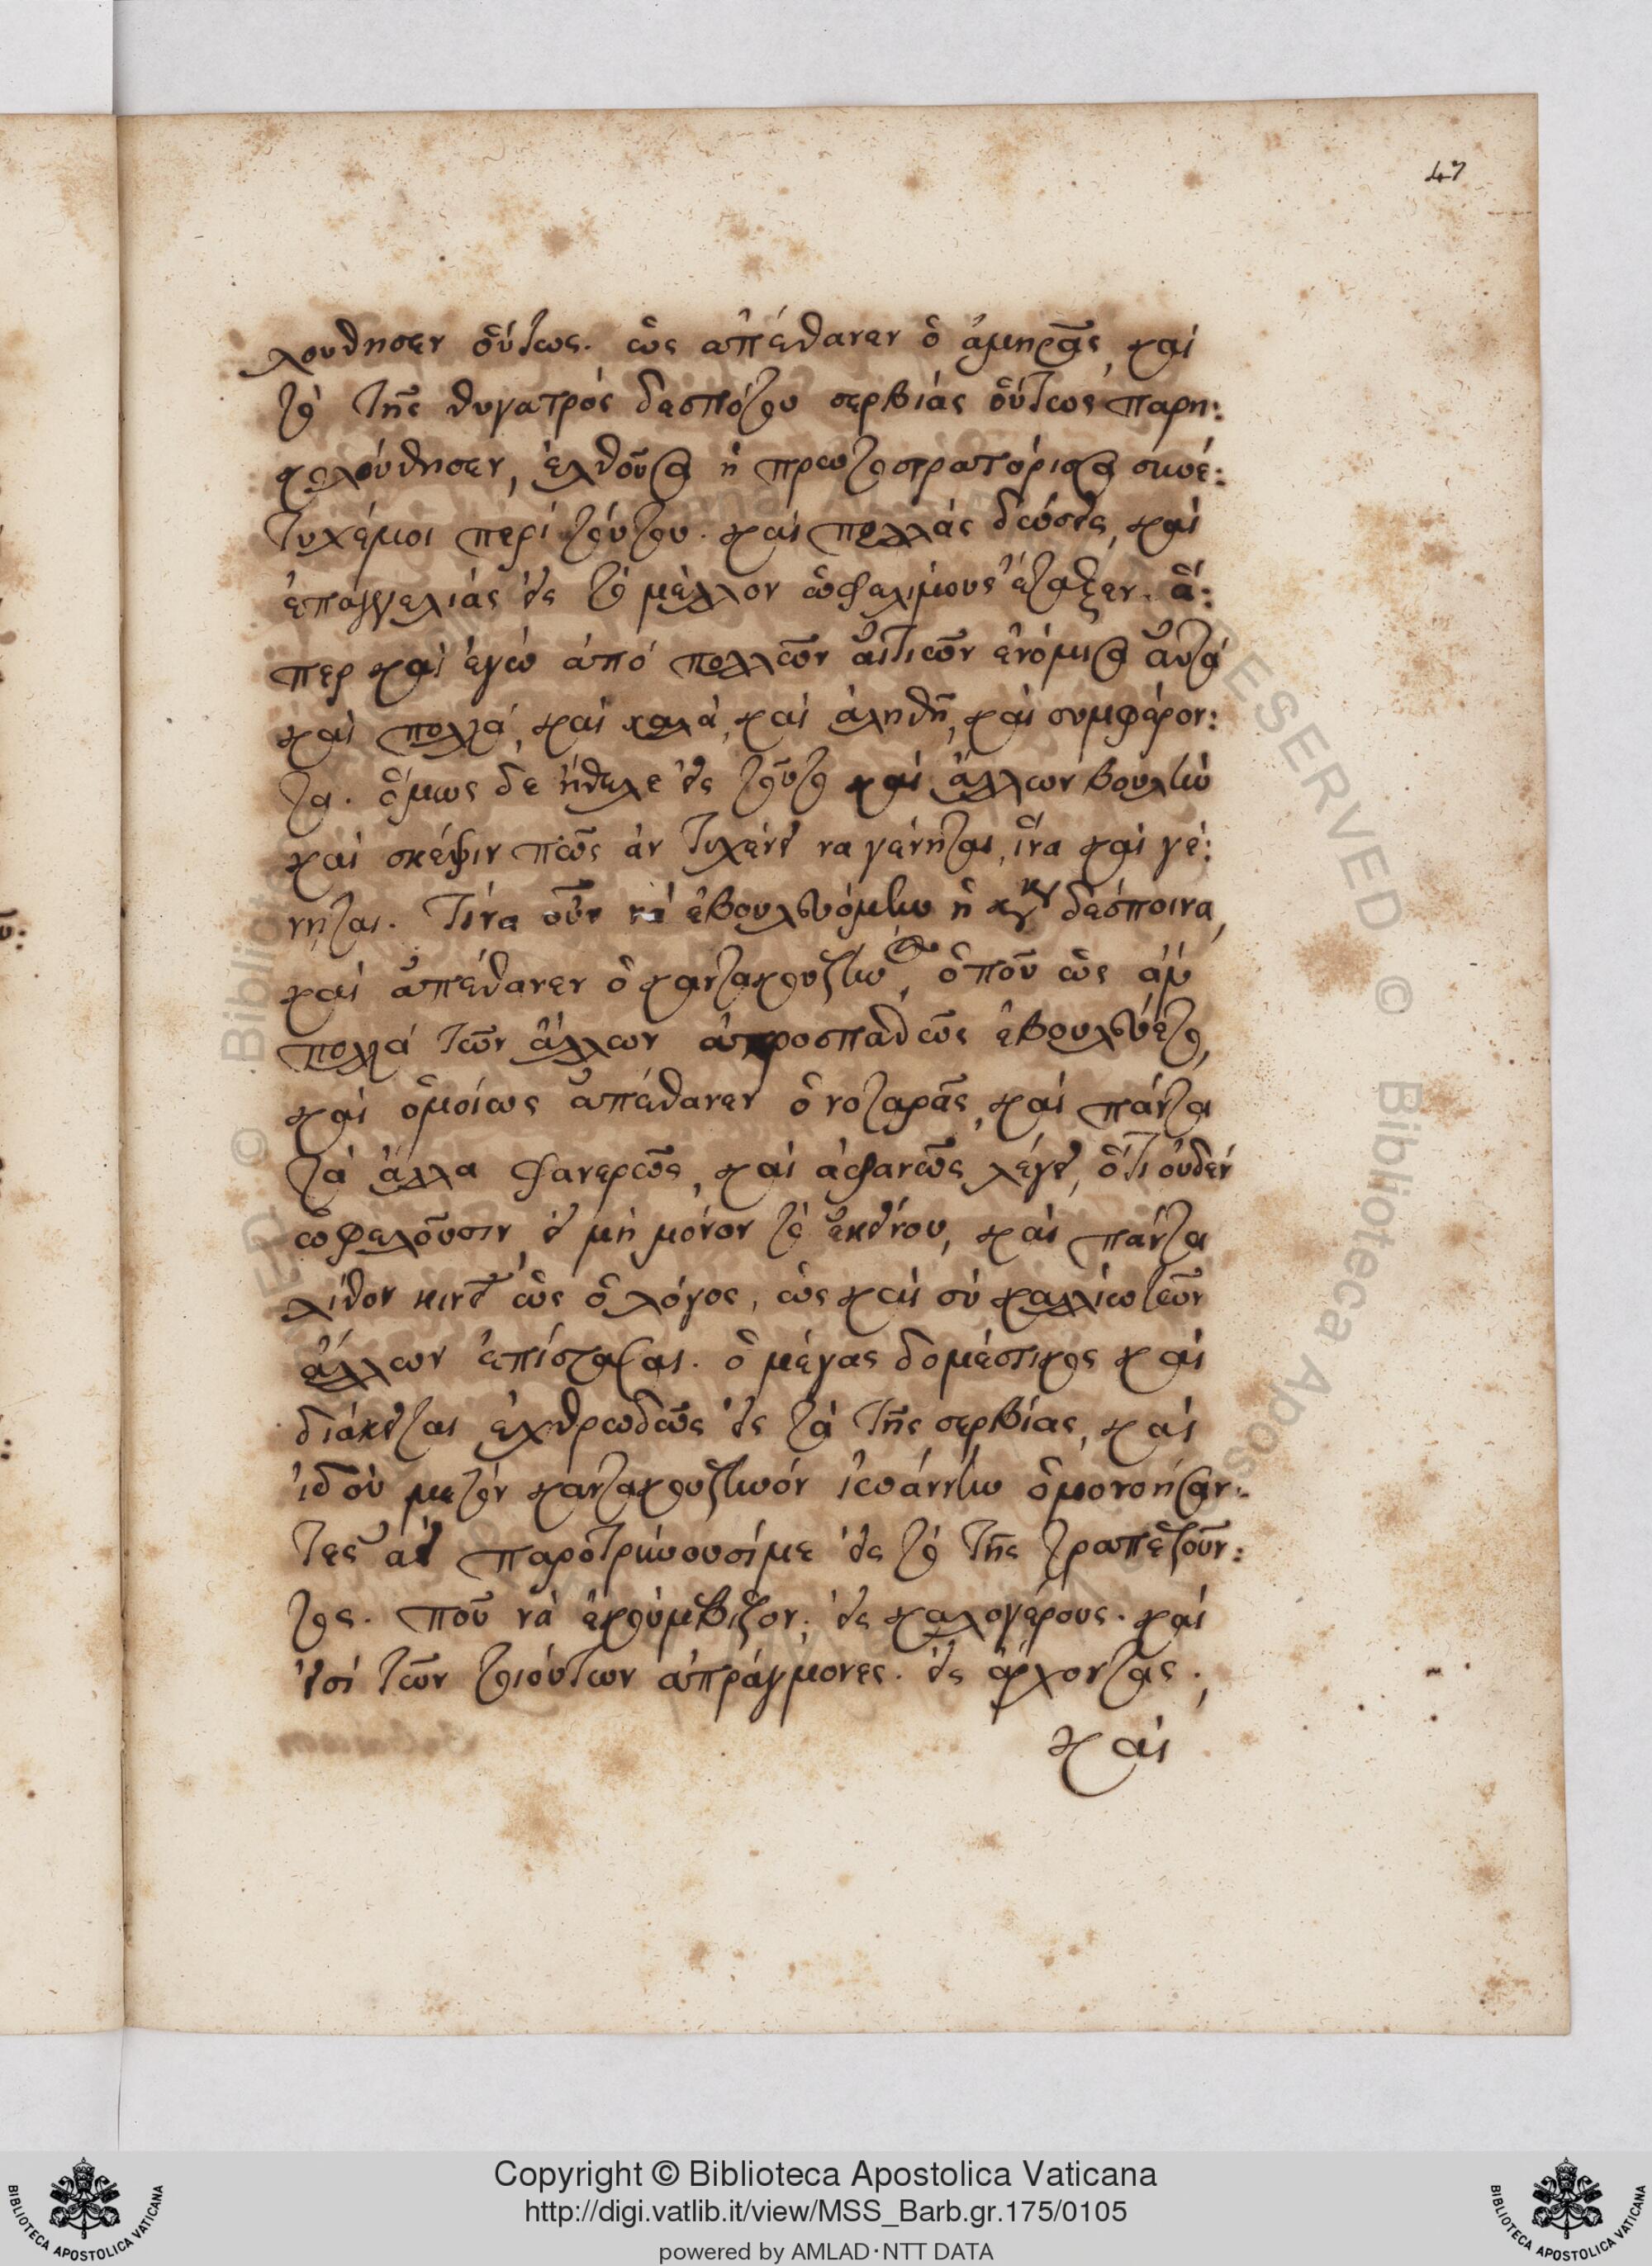 47
λουθησεν οὕτως. ὡς ἀπέθανεν ὁ ἀμηρᾶς, καὶ
τὸ τῆς θυγατρὸς δεσπότου σερβίας οὕτως παρη:
κολούθησεν, ἐλθοῦσα ἡ πρωτοστρατόρισα συνέ:
τυχέμοι περὶ τούτου. καὶ πολλὰς δώσεις, καὶ
ἐπαγγελίας εἰς τὸ μέλλον ὠφαλίμους ἔταξεν. ἅ:
περ καὶ ἐγὼ ἀπὸ πολλῶν αἰτιῶν ἐνόμισα αὐτὰ
καὶ πολλὰ, καὶ καλὰ, καὶ ἀληθῆ, καὶ συμφέρον:
τα. ὅμως δε ἤθελε εἰς τοῦτο καὶ ἄλλων βουλὴν
καὶ σκέψιν πῶς ἂν τυχένει να γένηται, ἵνα καὶ γέ:
νηται. Τίνα οὖν νὰ ἐβουλευόμην ἡ δέσποινα,
καὶ ἀπέθανεν ὁ καντακουζηνὸς, ὁποῦ ὡς ἂν
πολλὰ τῶν ἄλλων ἀπροσπαθῶς ἐβουλεύετο,
καὶ ὁμοίως ἀπέθανεν ὁ νοταρᾶς, καὶ πάντα
τὰ ἄλλα φανερῶς, καὶ ἀφανῶς λέγει, ὅτι οὐδὲν
ὠφελοῦσιν, εἰ μὴ μόνον τὸ ἐκείνου, καὶ πάντα
λίθον κινεῖ ὡς ὁ λόγος, ὡς καὶ σὺ καλλίω τῶν
ἄλλων ἐπίστασαι. ὁ μέγας δομέστικος καὶ
διάκειται ἐχθρωδῶς εἰς τὰ τῆς σερβίας, καὶ
ἰδοὺ μετὸν καντακουζηνὸν ἰωάννην ὁμονοήσαν:
τες παρὀτρύνουσίμε εἰς τὸ τῆς τραπεζοῦν:
τος. ποῦ νὰ ἐκούμβιζον; εἰς καλογέρους. καὶ
εἰσὶ τῶν τοιούτων ἀπράγμονες. εἰς ἄρχοντας;
καὶ
Copyright © Biblioteca Apostolica Vaticana
http://digi.vatlib.it/view/MSS_Barb.gr.175/0105
powered by AMLAD·NTT DATA